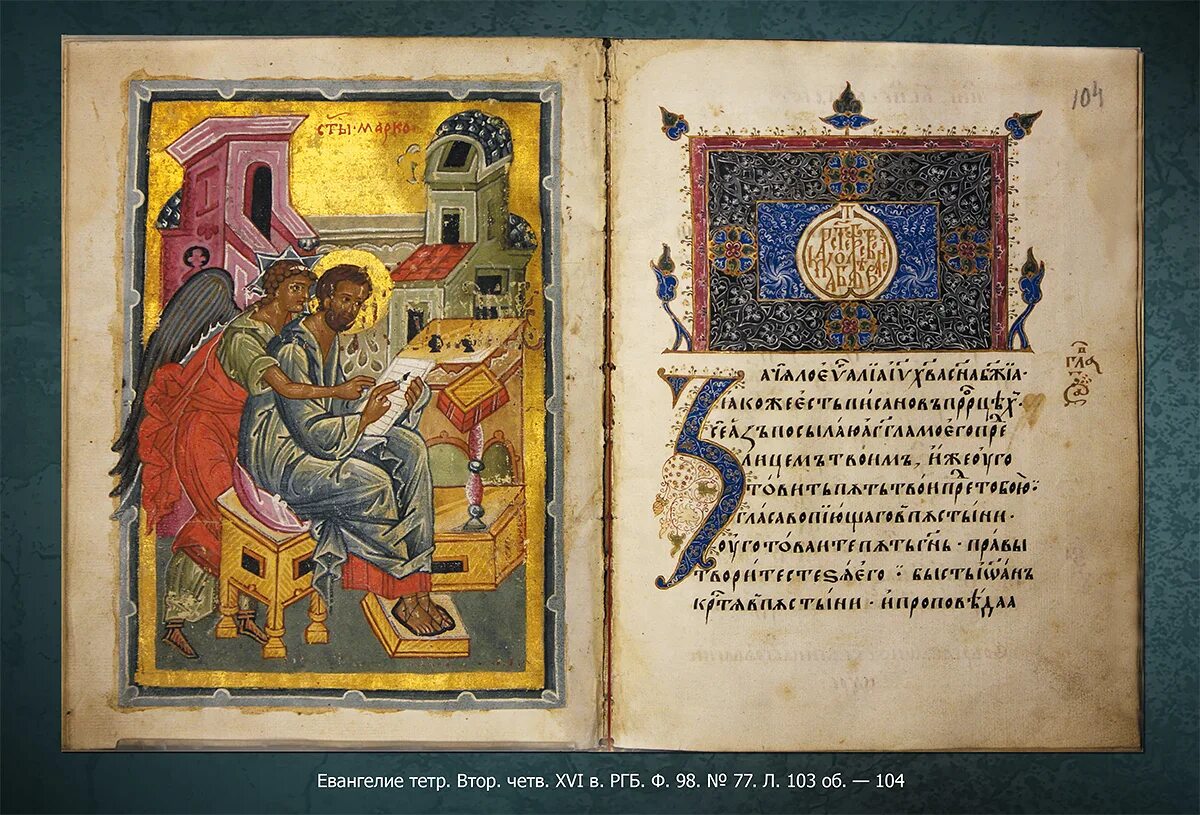 ст҃ы · марко
104
Зачѧло еѵ҃алїа і҃у х҃ва сн҃а бж҃їа ·
ꙗкоже есть писано въ прⷪрцѣⷯ ·
се азъ посылаю агг҃ла моего пре
лицемъ твоимъ, иже оуго
товить пꙋть твои преⷣ тобою :
гласа вопїющаго в пꙋстыни ·
оуготоваите пꙋть гн҃ь · правы
творите стеѕѧ его : бысть іѡанъ
крⷭтѧ в пꙋстыни · и проповѣдаа
Евангелие тетр. Втор. четв. XVI в. РГБ. Ф. 98. № 77. Л. 103 об. — 104